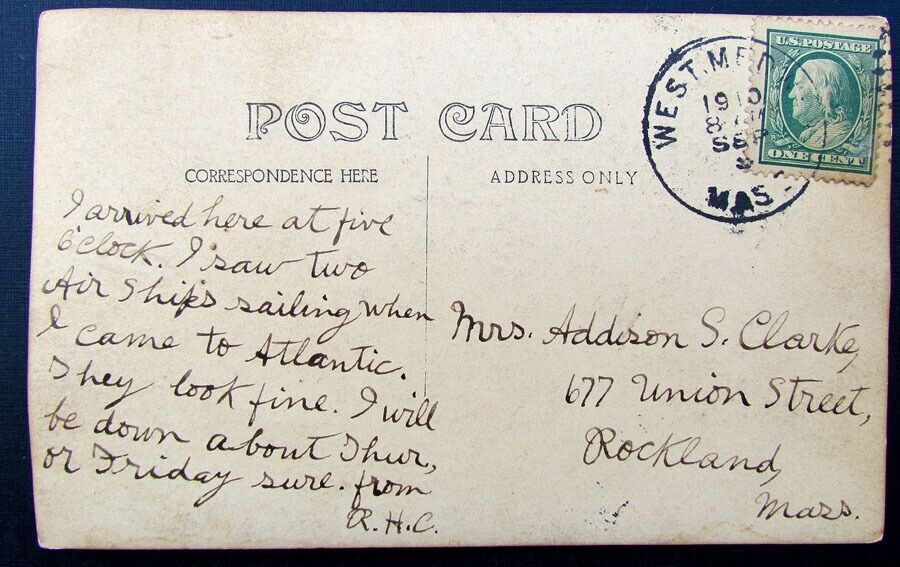 POST CARD
CORRESPONDENCE HERE
ADDRESS ONLY
WEST. MED
1910
8
SEP
MAS
U.S. POSTAGE
ONE CENT
I arrived here at five
O'clock. I saw two
Air Ships sailing when
I came to Atlantic.
They look fine. I will
be down about Thur,
or Friday sure. from
R.H.C.
Mrs. Addison S. Clarke,
677 Union Street,
Rockland,
Mass.